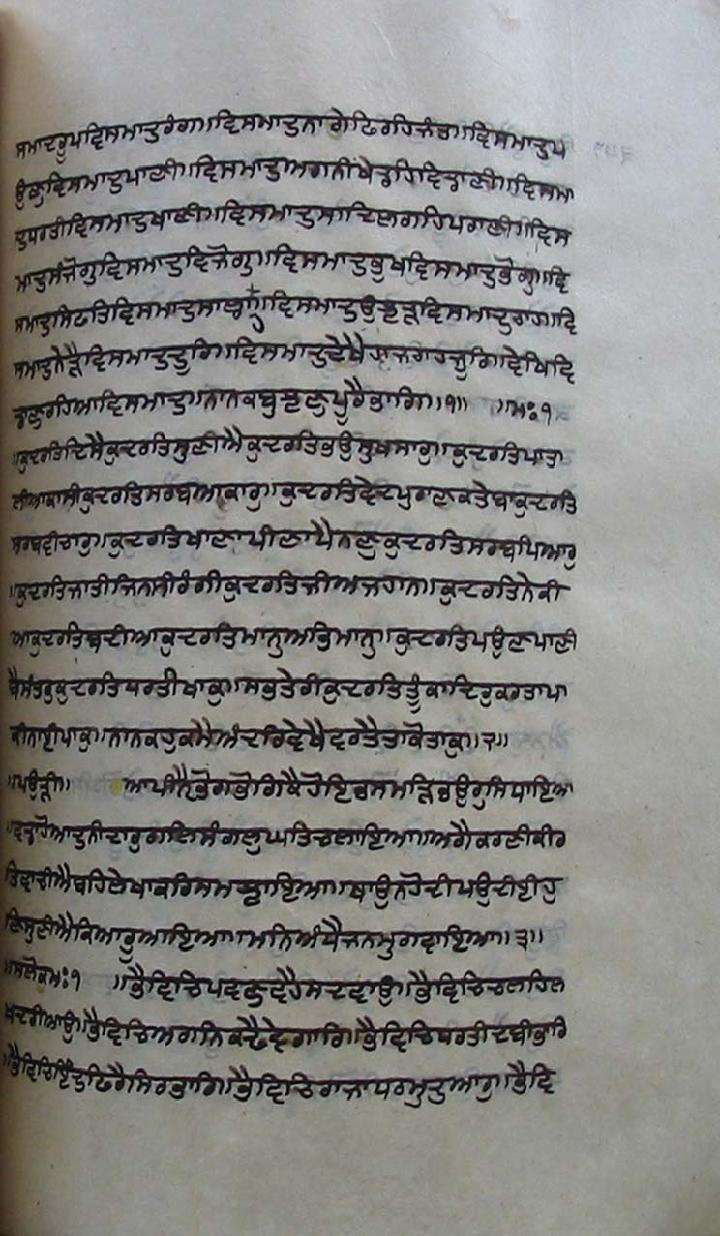 ਸਮਾਦੁਰੂਪਵਿਸਮਾਦੁਰੰਗ॥ਵਿਸਮਾਦੁਨਾਗੇਫਿਰਹਿਜੰਤ॥ਵਿਸਮਾਦੁਪ
ਉਣੁਵਿਸਮਾਦੁਪਾਣੀ॥ਵਿਸਮਾਦੁਅਗਨੀਖੇਡਹਿਵਿਡਾਣੀ॥ਵਿਸਮਾ
ਦੁਧਰਤੀਵਿਸਮਾਦੁਖਾਣੀ॥ਵਿਸਮਾਦੁਸਾਦਿਲਗਹਿਪਰਾਣੀ॥ਵਿਸ
ਮਾਦੁਸੰਜੋਗੁਵਿਸਮਾਦੁਵਿਜੋਗੁ॥ਵਿਸਮਾਦੁਭੁਖਵਿਸਮਾਦੁਭੋਗੁ॥ਵਿ
ਸਮਾਦੁਸਿਫਤਿਵਿਸਮਾਦੁਸਾਲਾਹ॥ਵਿਸਮਾਦੁਉਝੜਵਿਸਮਾਦੁਰਾਹ॥ਵਿ
ਸਮਾਦੁਨੇੜੈਵਿਸਮਾਦੁਦੂਰਿ॥ਵਿਸਮਾਦੁਦੇਖੈਹਾਜਰਾਹਜੂਰਿ॥ਵੇਖਿਵਿ
ਡਾਣੁਰਹਿਆਵਿਸਮਾਦੁ॥ਨਾਨਕਬੁਝਣੁਪੂਰੈਭਾਗਿ॥੧॥ ॥ਮਃ੧
॥ਕੁਦਰਤਿਦਿਸੈਕੁਦਰਤਿਸੁਣੀਐਕੁਦਰਤਿਭਉਸੁਖਸਾਰੁ॥ਕੁਦਰਤਿਪਾਤਾ
ਲੀਆਕਾਸੀਕੁਦਰਤਿਸਰਬਆਕਾਰੁ॥ਕੁਦਰਤਿਵੇਦਪੁਰਾਣਕਤੇਬਾਕੁਦਰਤਿ
ਸਰਬਵੀਚਾਰੁ॥ਕੁਦਰਤਿਖਾਣਾਪੀਣਾਪੈਨਣੁਕੁਦਰਤਿਸਰਬਪਿਆਰੁ
॥ਕੁਦਰਤਿਜਾਤੀਜਿਨਸੀਰੰਗੀਕੁਦਰਤਿਜੀਅਜਹਾਨ॥ਕੁਦਰਤਿਨੇਕੀ
ਆਕੁਦਰਤਿਬਦੀਆਕੁਦਰਤਿਮਾਨੁਅਭਿਮਾਨੁ॥ਕੁਦਰਤਿਪਉਣਪਾਣੀ
ਬੈਸੰਤਰੁਕੁਦਰਤਿਧਰਤੀਖਾਕੁ॥ਸਭਤੇਰੀਕੁਦਰਤਿਤੂੰਕਾਦਿਰੁਕਰਤਾਪਾ
ਕੀਨਾਈਪਾਕੁ॥ਨਾਨਕਹੁਕਮੈਅੰਦਰਿਵੇਖੈਵਰਤੈਤਾਕੋਤਾਕੁ॥੨॥
॥ਪਉੜੀ॥ ਆਪੀਨੈਭੋਗਭੋਗਿਕੈਹੋਇਭਸਮੜਿਭਉਰੁਸਿਧਾਇਆ
॥ਵਡਾਹੋਆਦੁਨੀਦਾਰੁਗਲਿਸੰਗਲੁਘਤਿਚਲਾਇਆ॥ਅਗੈਕਰਣੀਕੀਰ
ਤਿਵਾਚੀਐਬਹਿਲੇਖਾਕਰਿਸਮਝਾਇਆ॥ਥਾਉਨਹੋਵੀਪਉਦੀਈਹੁ
ਣਿਸੁਣੀਐਕਿਆਰੂਆਇਆ॥ਮਨਿਅੰਧੈਜਨਮੁਗਵਾਇਆ॥੩॥
॥ਸਲੋਕਮਃ੧ ॥ਭੈਵਿਚਿਪਵਣੁਵਹੈਸਦਵਾਉ॥ਭੈਵਿਚਿਚਲਹਿਲ
ਖਦਰੀਆਉ॥ਭੈਵਿਚਿਅਗਨਿਕਢੈਵੇਗਾਰਿ॥ਭੈਵਿਚਿਧਰਤੀਦਬੀਭਾਰਿ
॥ਭੈਵਿਚਿਇੰਦੁਫਿਰੈਸਿਰਭਾਰਿ॥ਭੈਵਿਚਿਰਾਜਾਧਰਮੁਦੁਆਰੁ॥ਭੈਵਿ